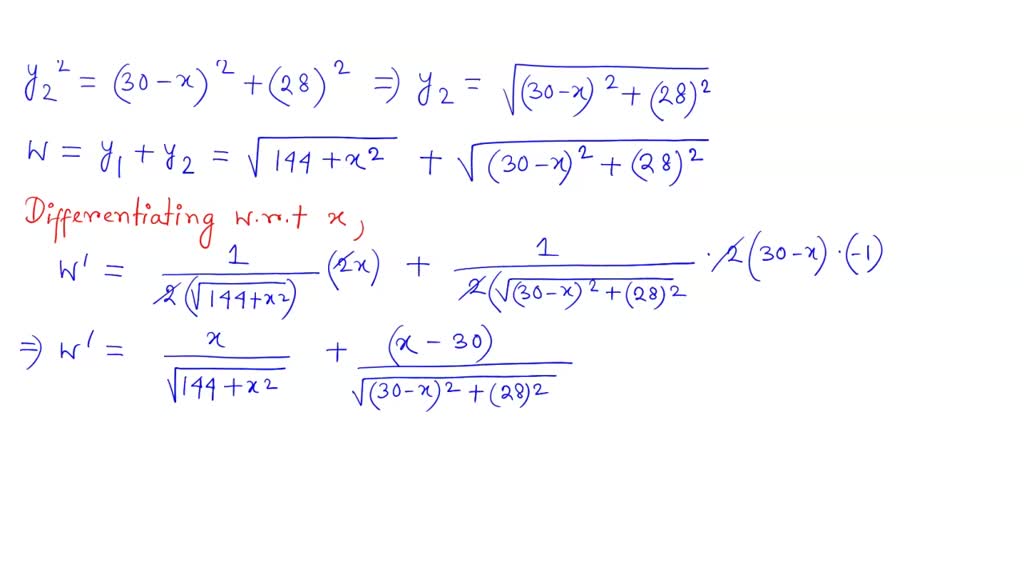 y₂² = (30-x)² + (28)² ⇒ y₂ = √((30-x)² + (28)²)
W = y₁ + y₂ = √(144+x²) + √((30-x)² + (28)²)
Differentiating w.r.t x,
W' = 1/(2(√(144+x²))) (2x) + 1/(2(√((30-x)² + (28)²)) · 2(30-x)·(-1)
⇒ W' = x/√(144+x²) + (x-30)/√((30-x)² + (28)²)